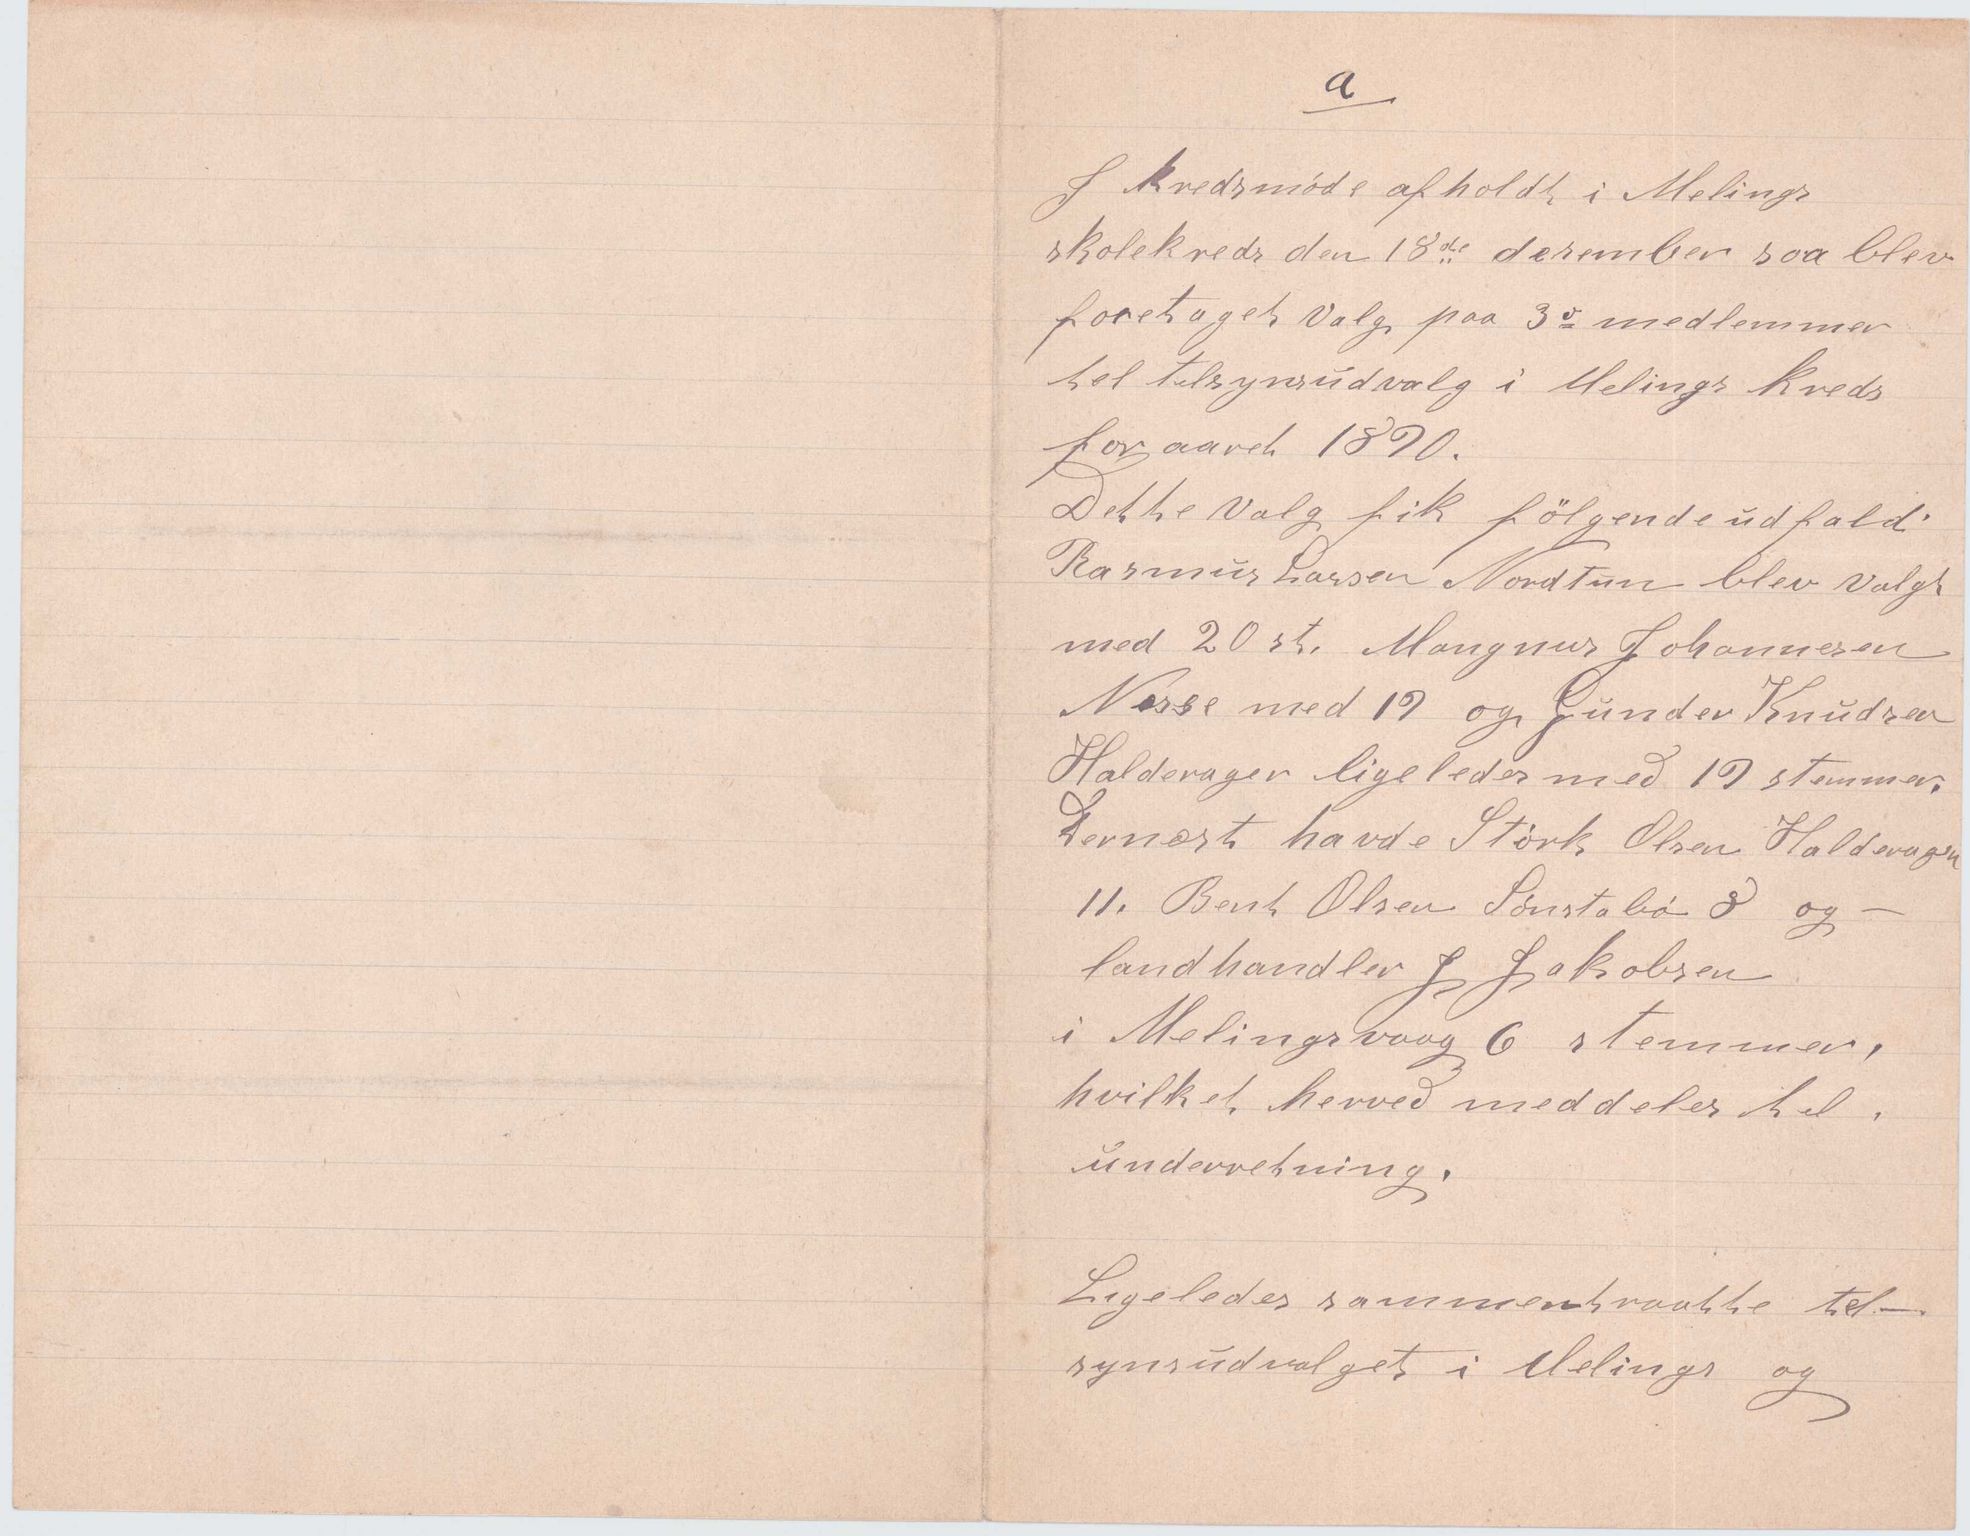 a
I kredsmöde afholdt i Melings
skolekreds den 18de desember saa blev
foretaget valg paa 3o medlemmer
tel telsynsudvalg i Melings kreds
for aaret 1890.
Dette valg fik fölgende udfald:
Rasmus Larsen Nordtun blev valgt
med 20 st. Mangnus Johannesen
Nesse med 19 og Gunder Knudsen
Halderager ligeledes med 19 stemmer.
Dernæst havde Störk Olsen Halderager
11. Bent Olsen Sönstabö 8 og –
landhandler J Jakobsen
i Melingsvaag 6 stemmer,
hvilket herved meddeles tel
underretning.
Ligeledes sammentraatte tel–
synsudvalget i Melings og